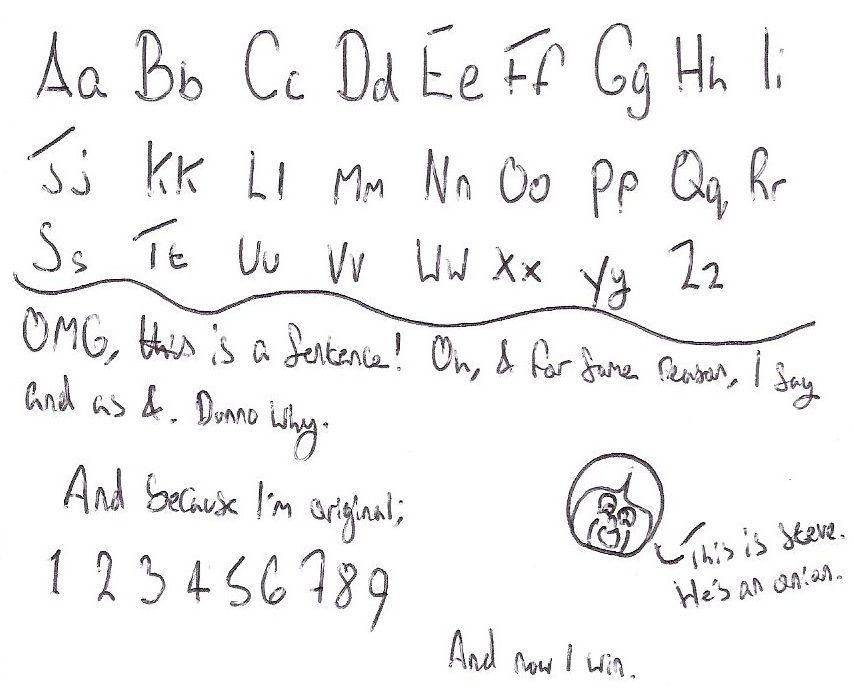 Aa Bb Cc Dd Ee Ff Gg Hh Ii
Jj Kk Ll Mm Nn Oo Pp Qq Rr
Ss Tt Uu Vv Ww Xx Yy Zz
OMG, this is a sentence! Oh, & for some reason, I say
and as &. Dunno why.
And because I'm original;
1 2 3 4 5 6 7 8 9
This is Steve.
He's an onion.
And now I win.